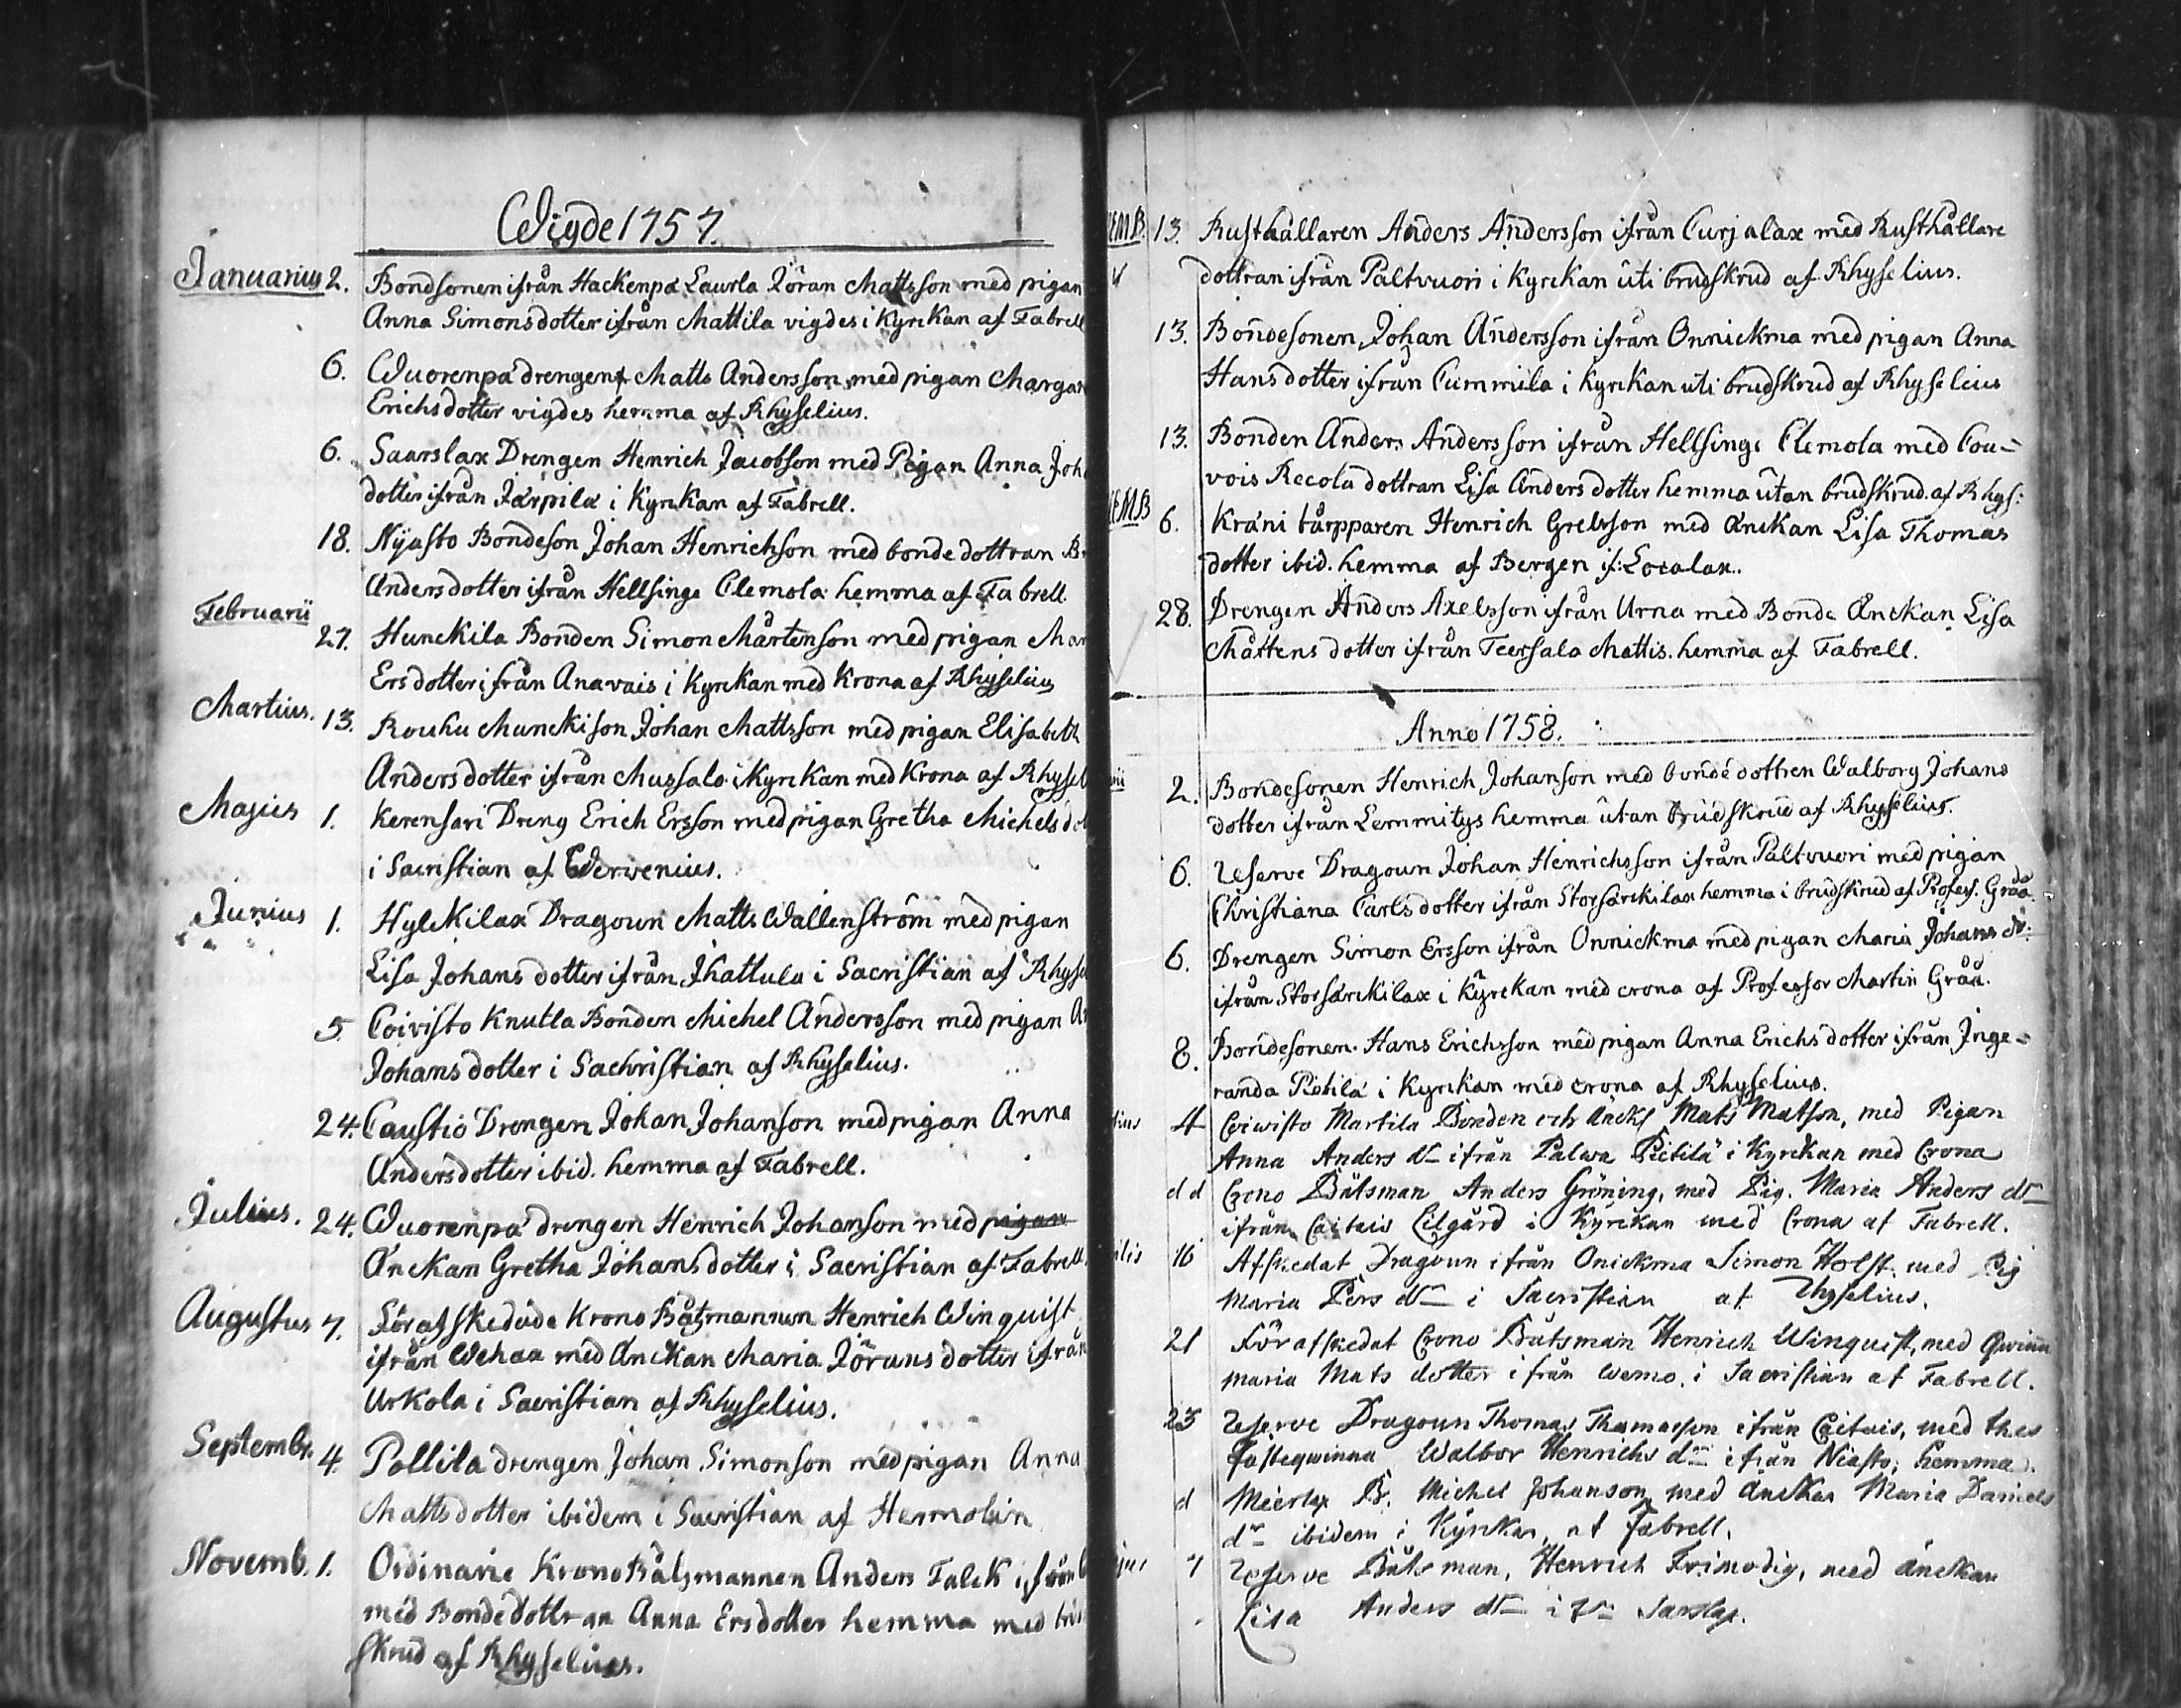 Wigde 1757.
Januarius 2. Bondsonen ifrån Hackenpä Laurla Jöran Mattsson med pigan
Anna Simonsdotter ifrån Mattila vigdes i Kyrckan af Fabrell
6. Wuorenpä drengen Matts Andersson med pigan Margar
Erichsdotter vigdes hemma af Rhyselius.
6. Saarslax Drengen Henrich Jacobson med Pigan Anna Joh
dotter ifrån Järpilä i Kyrckan af Fabrell.
18. Nÿästo Bondeson Johan Henrichson med bonde dottran Br
Andersdotter ifrån Hellsinge Clemola hemma af Fabrell.
Februarii
27. Hunckila Bonden Simon Mårtenson med pigan Mar
Ersdotter ifrån Anavais i Kyrckan med Krona af Rhyselius
Martius. 13. Rouhu Munckison Johan Mattsson med pigan Elisabeth
Andersdotter ifrån Mussalo i Kyrckan med Krona af Rhysel
Majus 1. Kerensari Dreng Erich Ersson med pigan Gretha Michels dot
i Sacristian af Wervenius.
Junius 1. Hylckilax Dragoun Matts Wallenström med pigan
Lisa Johans dotter ifrån Ihattula i Sacristian af Rhyse
5. Coivisto Knutla Bonden Michel Andersson med pigan An
Johans dotter i Sachristian af Rhyselius.
24. Caustio Drengen Johan Johanson med pigan Anna
Andersdotter ibid. hemma af Fabrell.
Julius. 24. Wuorenpä drengen Henrich Johanson med pigan
Änckan Gretha Johans dotter i Sacristian af Fabrell
Augustus 7. Förafskedade Krono Båtzmannen Henrich Winquist
ifrån Wehaa med Änckan Maria Jörans dotter ifrån
Urkola i Sacristian af Rhyselius.
Septembr. 4. Pollila drengen Johan Simonson med pigan Anna
Mattsdotter ibidem i Sacristian af Hermolin
Novemb. 1. Ordinarie Krono Båtzmannen Anders Falck ifrån
med Bondedottran Anna Ersdotter hemma med brud
skrud af Rhyselius.
EMB. 13. Rusthållaren Anders Andersson ifrån Curjalax med Rusthållare
dottran ifrån Paltvuori i Kyrckan uti brudskrud af Rhyselius.
13. Bondesonen Johan Andersson ifrån Onnickma med pigan Anna
Hans dotter ifrån Cummila i Kyrckan uti brudskrud af Rhyselius
13. Bonden Anders Andersson ifrån Hellsinge Clemola med Cou-
vois Recola dottran Lisa Anders dotter hemma utan brudskrud af Rhys:
EMB 6. Kräni tårpparen Henrich Grelsson med änckan Lisa Thomas
dotter ibid. hemma af Bergen if: Localax.
28. Drengen Anders Axelsson ifrån Urna med Bonde Änckan Lisa
Mårtens dotter ifrån Teersalo Mattis. hemma af Fabrell.
Anno 1758.
2. Bondesonen Henrich Johanson med bonde dottren Walborg Johans
dotter ifrån Lemmitys hemma utan brudskrud af Rhyselius.
6. Reserve Dragoun Johan Henrichsson ifrån Paltvuori med pigan
Christiana Carls dotter ifrån Storsarckilax hemma i brudskrud af Profess. Gråå.
6. Drengen Simon Ersson ifrån Onnickma med pigan Maria Johans dr:
ifrån Storsarckilax i Kyrckan med crona af Professor Martin Gråå.
8. Bondesonen Hans Erichsson med pigan Anna Erichs dotter ifrån Inge-
randa Pietilä i Kyrckan med crona af Rhyselius.
4 Coivisto Martila Bonden och änckl Mats Matson, med Pigan
Anna Anders dr ifrån Palwa Pietilä i Kyrckan med Crona
d d Crono Båtsman Anders Gröning, med Pig. Maria Anders dr
ifrån Caitais Lilgård i Kyrckan med Crona af Fabrell.
16 Afskedat Dragoun ifrån Onickma Simon Holst. med Pig
Maria Pers dr i Sacristian af Rhyselius.
21 Förafskedat Crono Båtsman Henrich Winquist, med Qwinn
maria Mats dotter ifrån wemo i Sacristian af Fabrell.
23 Reserve Dragoun Thomas Thomasson ifrån Caitais, med thes
Fästeqwinna Walbor Henrichs dr ifrån Niästo, hemma.
d Meerlax B. Michel Johanson med änckan Maria Daniels
dr ibidem i Kyrckan af Fabrell.
7 Reserve Båtsman, Henrich Frimodig, med änckan
Lisa Anders dr ifr Sarslax.